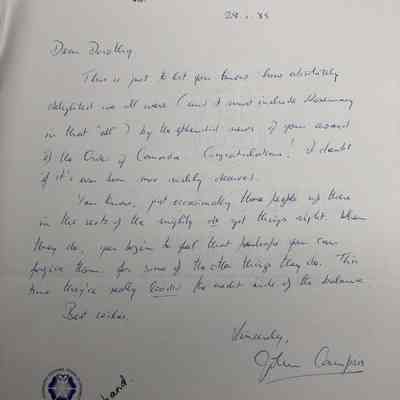 28.1.85
Dear Dorothy,
This is just to let you know how absolutely
delighted we all were (and I must include Rosemary
in that 'all') by the splendid news of your award
of the Order of Canada. Congratulations! I doubt
if it's ever been more richly deserved.
You know, just occasionally those people up there
in the seats of the mighty do get things right. When
they do, you begin to feel that perhaps you can
forgive them for some of the other things they do. This
time they're really the credit side of the balance
Best wishes.
Sincerely,
John